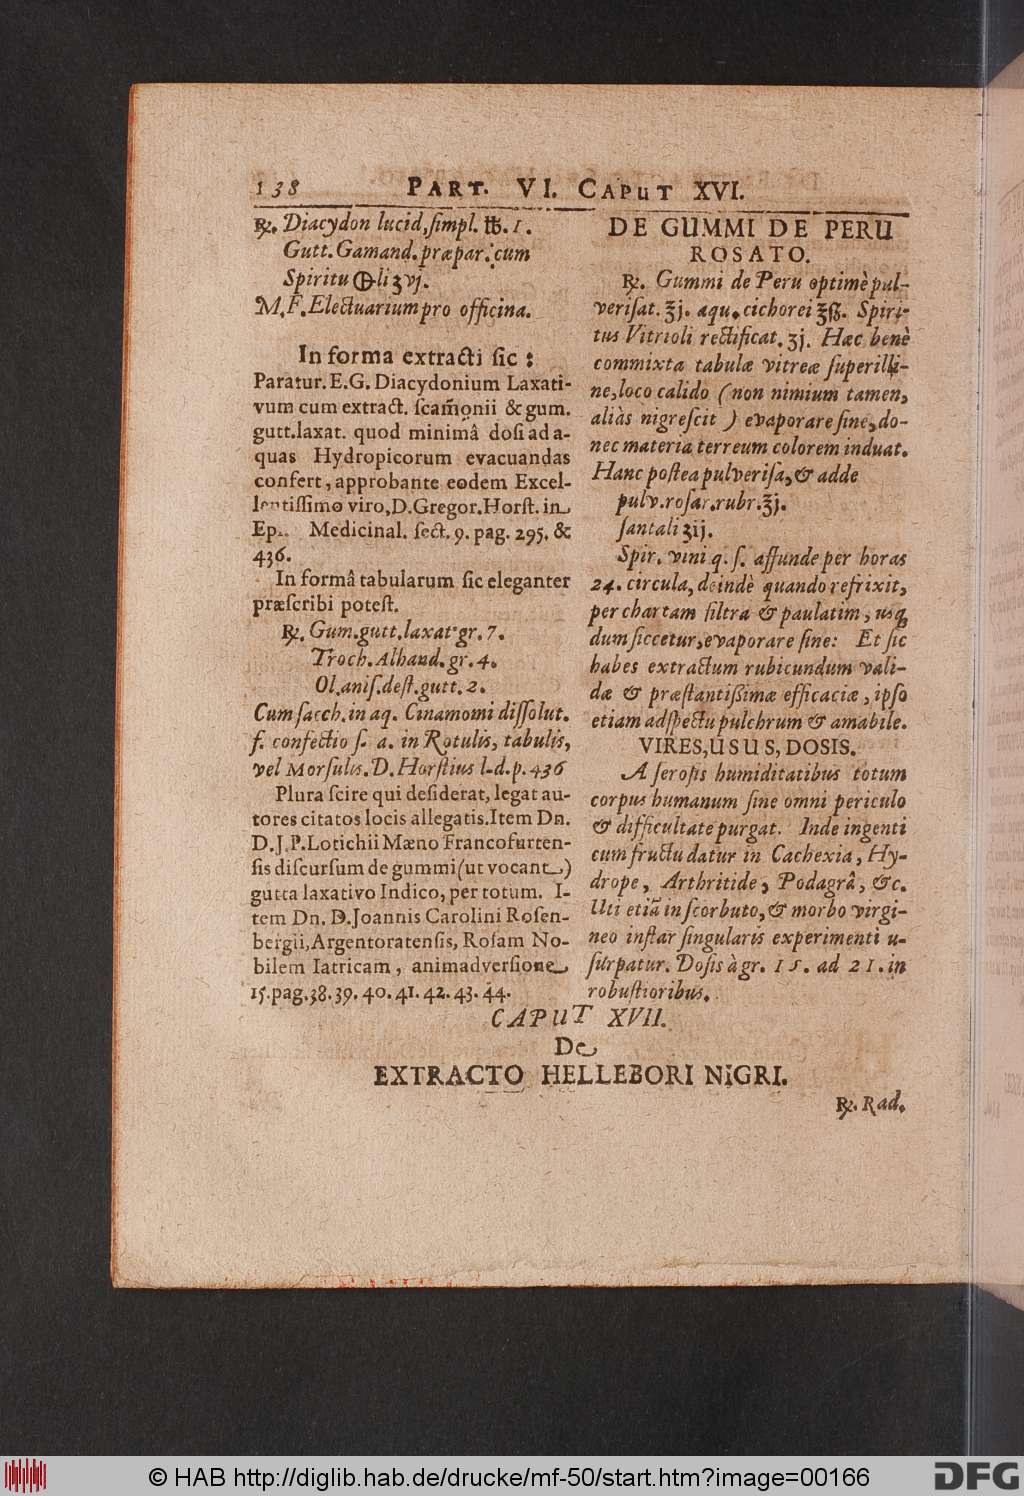 138 PART. VI. CAPUT XVI.
℞. Diacydon lucid, ſimpl. ℔. 1.
Gutt. Gamand. præpar. cum
Spiritu 🜕li ʒvj.
M. F. Electuarium pro officina.
In forma extracti ſic:
Paratur. E. G. Diacydonium Laxati-
vum cum extract. ſcam̃onii & gum.
gutt. laxat. quod minimâ doſi ad a-
quas Hydropicorum evacuandas
confert, approbante eodem Excel-
lentiſſimo viro, D. Gregor. Horſt. in
Ep. Medicinal. ſect. 9. pag. 295. &
436.
In formâ tabularum ſic eleganter
præſcribi poteſt.
℞. Gum. gutt. laxat. gr. 7.
Troch. Alhand. gr. 4.
Ol. aniſ. deſt. gutt. 2.
Cum ſacch. in aq. Cinamomi diſſolut.
f. confectio ſ. a. in Rotulis, tabulis,
vel Morſulis. D. Horſtius l. d. p. 436
Plura ſcire qui deſiderat, legat au-
tores citatos locis allegatis. Item Dn.
D. J. P. Lotichii Mæno Francofurten-
ſis diſcurſum de gummi (ut vocant)
gutta laxativo Indico, per totum. I-
tem Dn. D. Joannis Carolini Roſen-
bergii, Argentoratenſis, Roſam No-
bilem Iatricam, animadverſione
15. pag. 38. 39. 40. 41. 42. 43. 44.
DE GUMMI DE PERU
ROSATO.
℞. Gummi de Peru optimè pul-
veriſat. ℥j. aqu. cichorei ℥ß. Spiri-
tus Vitrioli rectificat. ʒj. Hæc benè
commixta tabulæ vitreæ ſuperilli-
ne, loco calido (non nimium tamen,
aliàs nigreſcit) evaporare ſine, do-
nec materia terreum colorem induat.
Hanc poſtea pulveriſa, & adde
pulv. roſar. rubr. ℥j.
ſantali ʒij.
Spir. vini q. ſ. affunde per horas
24. circula, deindè quando refrixit,
per chartam filtra & paulatim, usq́
dum ſiccetur, evaporare ſine: Et ſic
habes extractum rubicundum vali-
dæ & præſtantißimæ efficaciæ, ipſo
etiam adſpectu pulchrum & amabile.
VIRES, USUS, DOSIS.
A ſeroſis humiditatibus totum
corpus humanum ſine omni periculo
& difficultate purgat. Inde ingenti
cum fructu datur in Cachexia, Hy-
drope, Arthritide, Podagrâ, &c.
Uti etiã in ſcorbuto, & morbo virgi-
neo inſtar ſingularis experimenti u-
ſurpatur. Doſis à gr. 15. ad 21. in
robuſtioribus.
CAPUT XVII.
De
EXTRACTO HELLEBORI NIGRI.
℞. Rad.
© HAB http://diglib.hab.de/drucke/mf-50/start.htm?image=00166
DFG